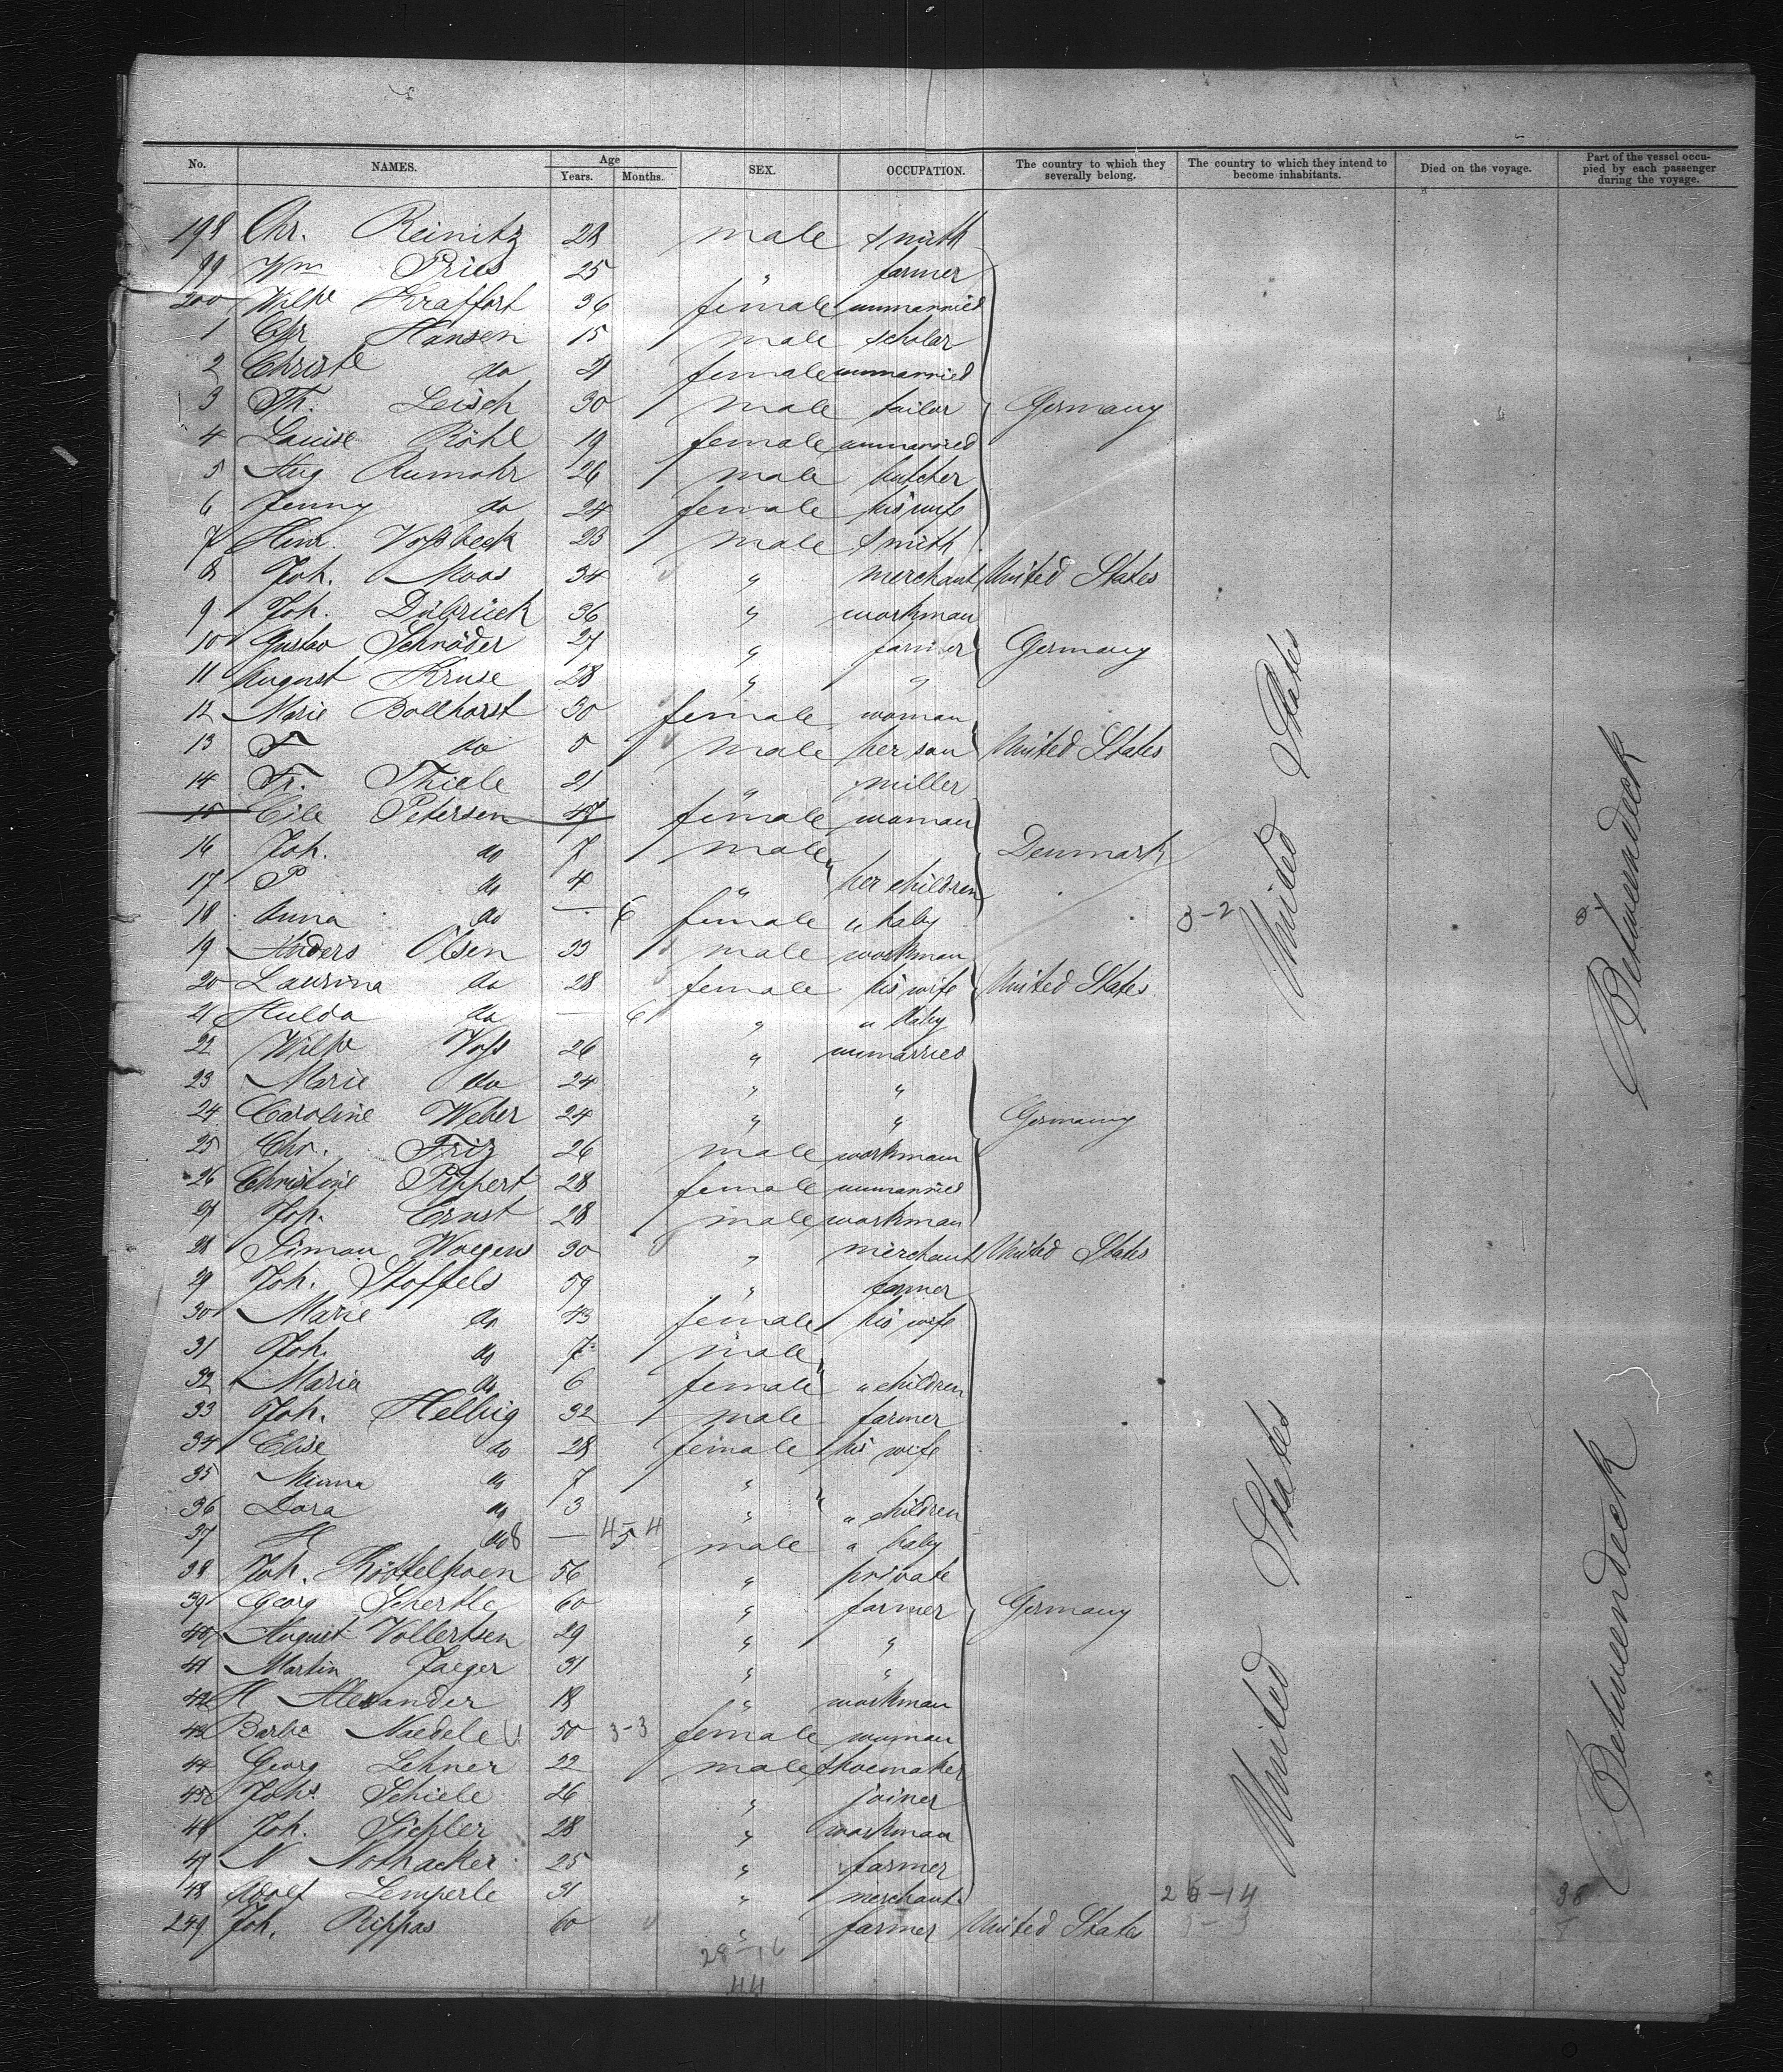 No. NAMES. Age Years. Months. SEX. OCCUPATION. The country to which they severally belong. The country to which they intend to become inhabitants. Died on the voyage. Part of the vessel occupied by each passenger during the voyage.
198 Chr. Reinitz 28 male smith
99 Wm Pries 25 " farmer
200 Wilhe Kraffort 36 female unmarried
1 Chr Hansen 15 male scholar
2 Christe do 21 female unmarried
3 Th. Leisch 30 male tailor Germany
4 Louise Röhl 19 female unmarried
5 Aug Rumohr 26 male butcher
6 Jenny do 24 female his wife
7 Hinr. Voßbeck 23 male smith
8 Joh. Moos 34 " merchant United States
9 Joh. Dübrück 36 " workman
10 Gustav Schröder 27 " farmer Germany
11 August Kruse 28 " "
12 Marie Bollhorst 30 female woman
13 F do 5 male her son United States
14 Fr. Thiele 21 " miller
15 Cile Petersen 47 female woman
16 Joh. do 7 male Denmark
17 P do 4 " her children
18 Anna do — 6 female " baby 3-2
19 Anders Olsen 33 male workman
20 Laurina do 28 female his wife United States
21 Hulda do — 6 " " baby
22 Wilhe Voß 26 " unmarried
23 Marie do 24 " "
24 Caroline Weber 24 " " Germany
25 Chr. Friz 26 male workman
26 Christine Pippert 28 female unmarried
27 Joh. Ernst 28 male workman
28 Simon Woegens 30 " merchant United States
29 Joh. Stoffels 59 " farmer
30 Marie do 43 female his wife
31 Joh. do 7 male
32 Maria do 6 female " children
33 Joh. Helbig 32 male farmer
34 Elise do 28 female his wife
35 Minna do 7 "
36 Dora do 3 " " children
37 H do — 5 male " baby
38 Joh. Köttelhoen 56 " private
39 Georg Scherfle 60 " farmer Germany
40 August Vollertsen 29 " "
41 Martin Jaeger 31 " "
42 H Alexander 18 " workman
43 Barba Naedele 50 3-3 female woman
44 Georg Lehner 22 male shoemaker
45 Johs Schiele 26 " joiner
46 Joh. Sichler 28 " workman
47 N Nothacker 25 " farmer
48 Adolf Lemperle 31 " merchant
249 Joh. Rippas 60 " farmer United States
44
United States
United States
Betweendeck
Betweendeck